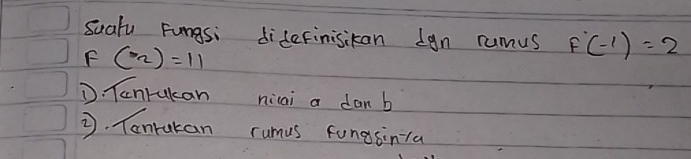 Suatu Fungsi didefinisikan dgn rumus F(-1) = 2
F (-2) = 11
1). Tentukan nilai a dan b
2). Tentukan rumus fungsinya